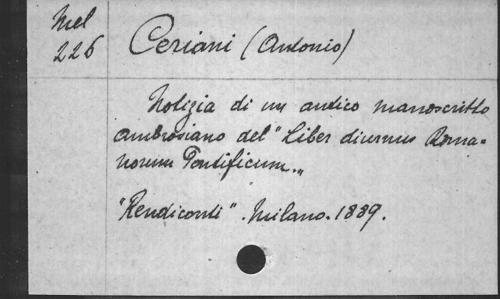 Mel
226
Ceriani (Antonio)
Notizia di un antico manoscritto
ambrosiano del "Liber diurnus Roma-
norum Pontificum„
"Rendiconti". Milano. 1889.